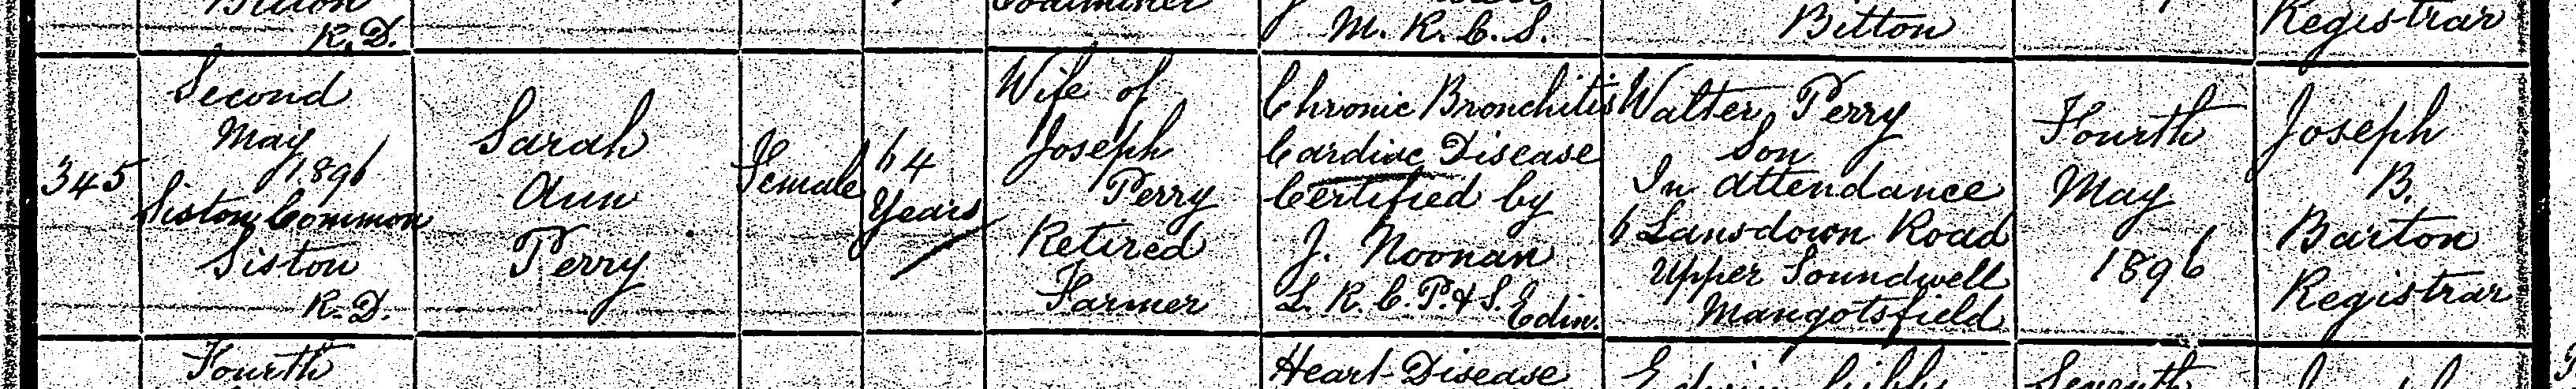 Bitton
R.D.
M. R. C. S.
Bitton
Registrar
345
Second
May
1896
Siston Common
Siston
R.D.
Sarah
Ann
Perry
Female
64
Years
Wife of
Joseph
Perry
Retired
Farmer
Chronic Bronchitis
Cardiac Disease
Certified by
J. Noonan
L. R. C. P. & S. Edin.
Walter Perry
Son
In attendance
6 Lansdown Road
Upper Soundwell
Mangotsfield
Fourth
May
1896
Joseph
B.
Barton
Registrar
Fourth
Heart Disease
Seventh